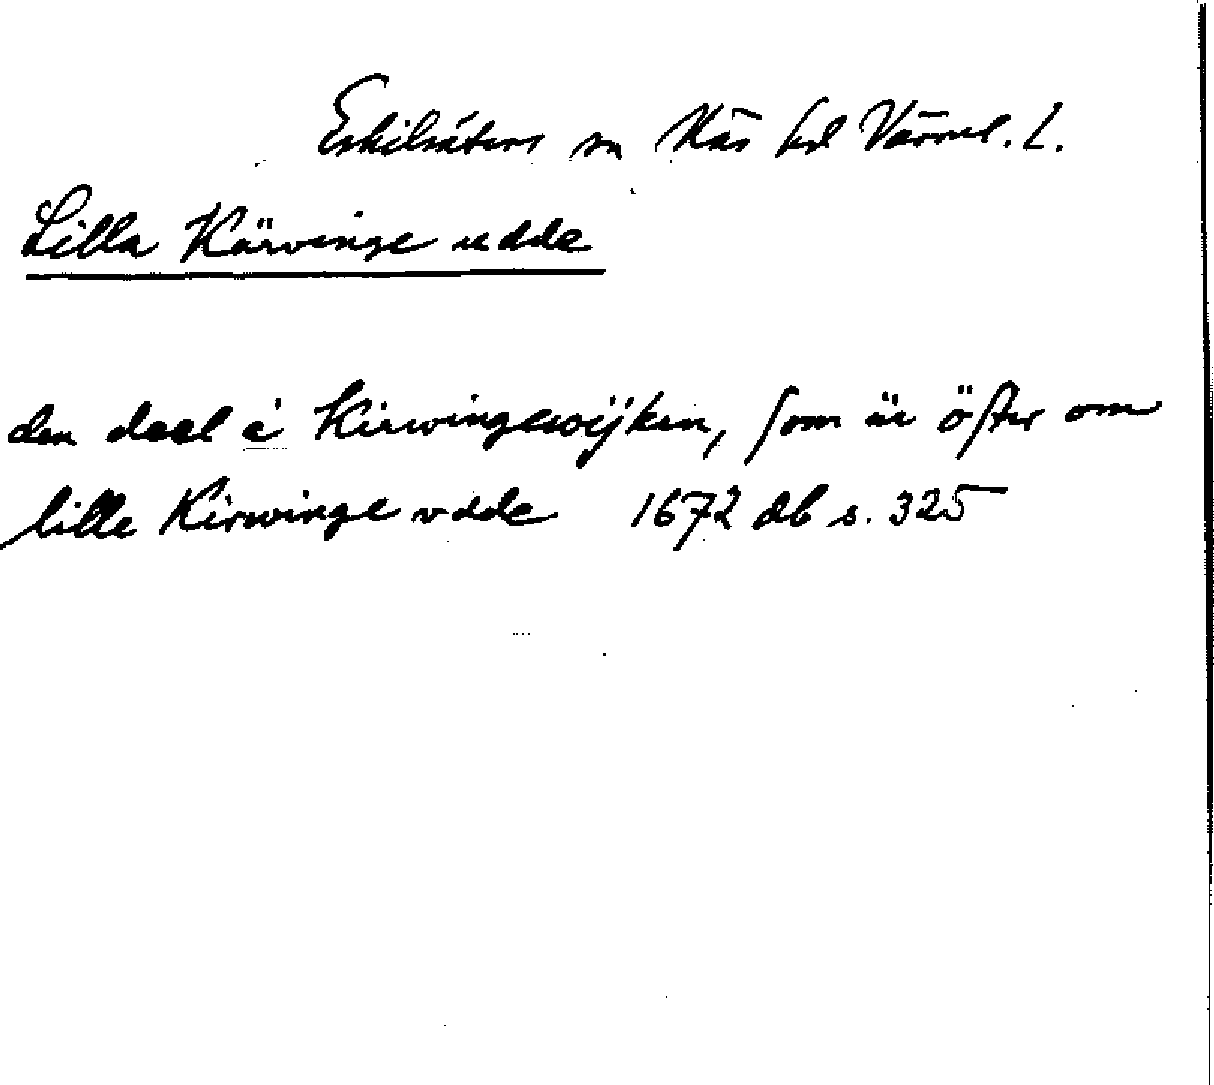 Eskilsäters sn Näs hd Värml. l.
Lilla Kärvinge udde
den deel i Kirwingewijken, som är öster om
lille Kirwinge vdde 1672 db s. 325